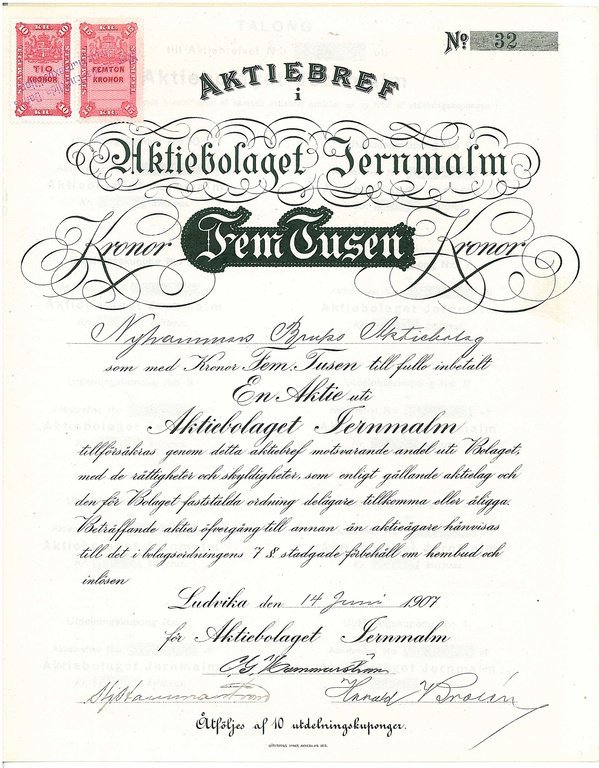 10 KR. 10
TIO
KRONOR
10 KR. 10
15 KR. 15
FEMTON
KRONOR
15 KR. 15
No. 32
AKTIEBREF
i
Aktiebolaget Jernmalm
Kronor Fem Tusen Kronor
Nyhammars Bruks Aktiebolag
som med Kronor Fem Tusen till fullo inbetalt
En Aktie uti
Aktiebolaget Jernmalm
tillförsäkras genom detta aktiebref motsvarande andel uti Bolaget,
med de rättigheter och skyldigheter, som enligt gällande aktielag och
den för Bolaget fastställda ordning delägare tillkomma eller åligga.
Beträffande akties öfvergång till annan än aktieägare hänvisas
till det i bolagsordningens 7 §. stadgade förbehåll om hembud och
inlösen
Ludvika den 14 Juni 1907
för Aktiebolaget Jernmalm
Harald
Åtföljes af 10 utdelningskuponger.